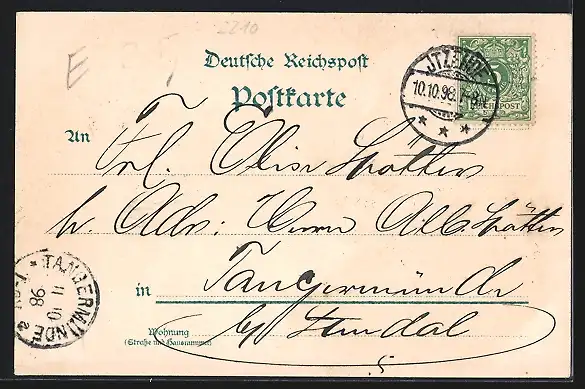 2210
E
Deutsche Reichspost
Postkarte
ITZEHOE
10.10.98.7-8N.
5
REICHSPOST
An
Frl. Elise Spötter
p. Adr: Herrn Alb Spötter
in Tangermünde
Wohnung
(Straße und Hausnummer)
by Stendal
TANGERMÜNDE
11 10
98